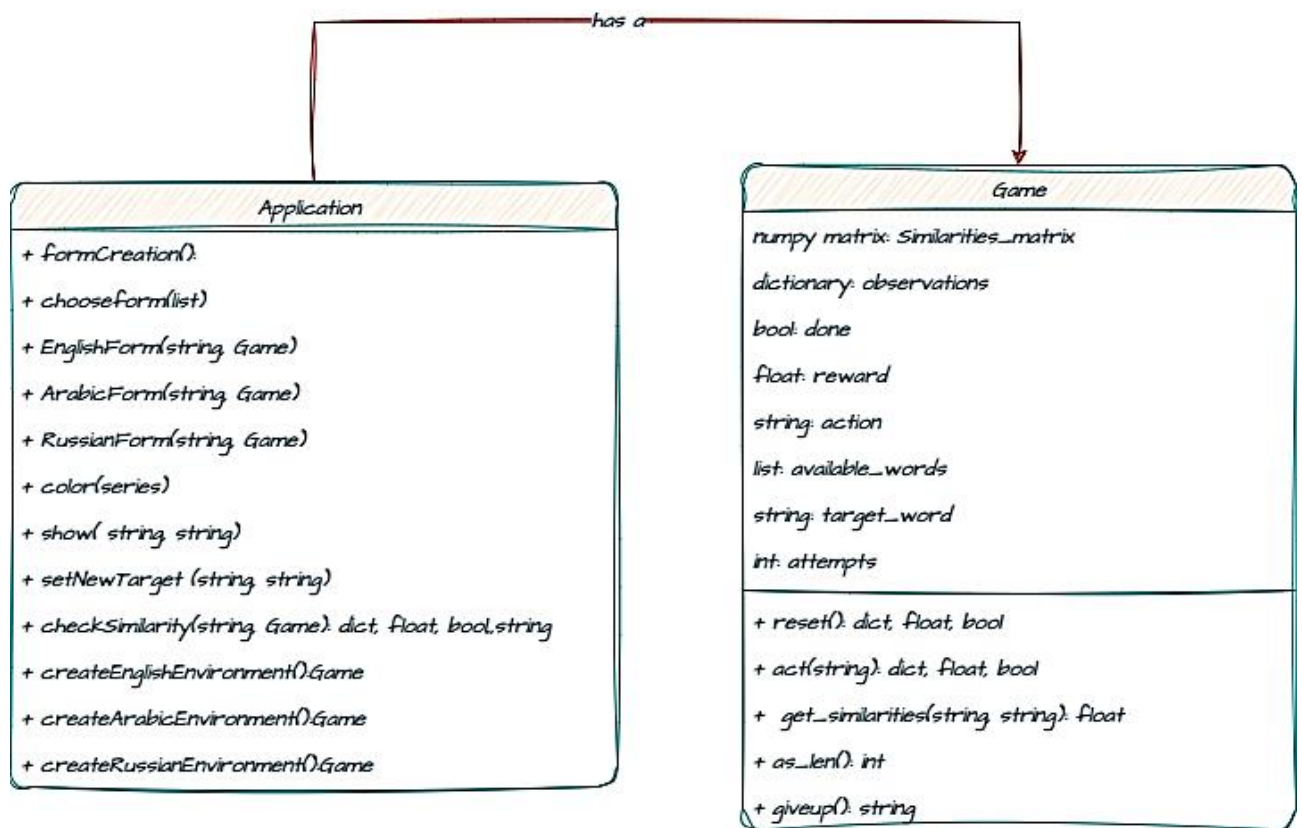 has a
Application
+ formCreation():
+ chooseform(list)
+ EnglishForm(string, Game)
+ ArabicForm(string, Game)
+ RussianForm(string, Game)
+ color(series)
+ show( string, string)
+ setNewTarget (string, string)
+ checkSimilarity(string, Game): dict, float, bool,string
+ createEnglishEnvironment():Game
+ createArabicEnvironment():Game
+ createRussianEnvironment():Game
Game
numpy matrix: Similarities_matrix
dictionary: observations
bool: done
float: reward
string: action
list: available_words
string: target_word
int: attempts
+ reset(): dict, float, bool
+ act(string): dict, float, bool
+ get_similarities(string, string): float
+ as_len(): int
+ giveup(): string